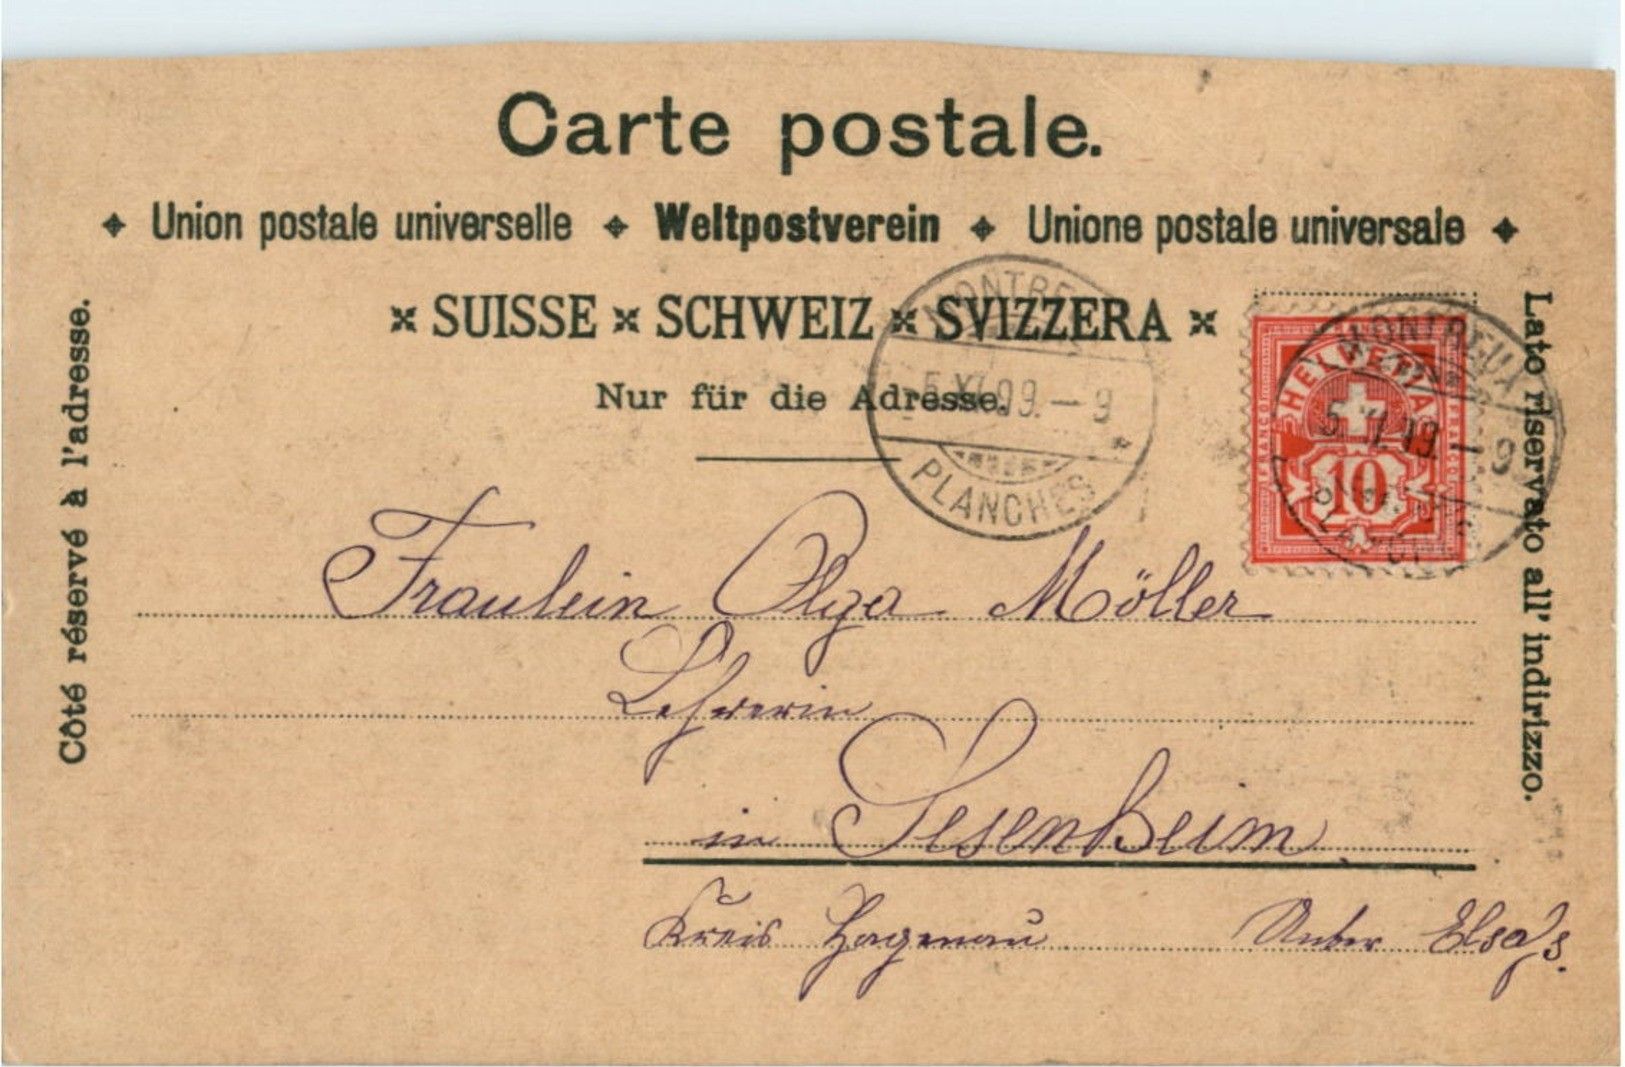 Carte postale.
Union postale universelle ✦ Weltpostverein ✦ Unione postale universale
SUISSE × SCHWEIZ × SVIZZERA
Nur für die Adresse.
Côté réservé à l'adresse.
Lato riservato all' indirizzo.
MONTREUX
5.XI.99.–9
PLANCHES
HELVETIA
FRANCO
10
MONTREUX
5.XI.99.–9
PLANCHES
Fraulein Olga Möller
Lehrerin
in Sesenheim
Kreis Hagenau Unter Elsaſs.